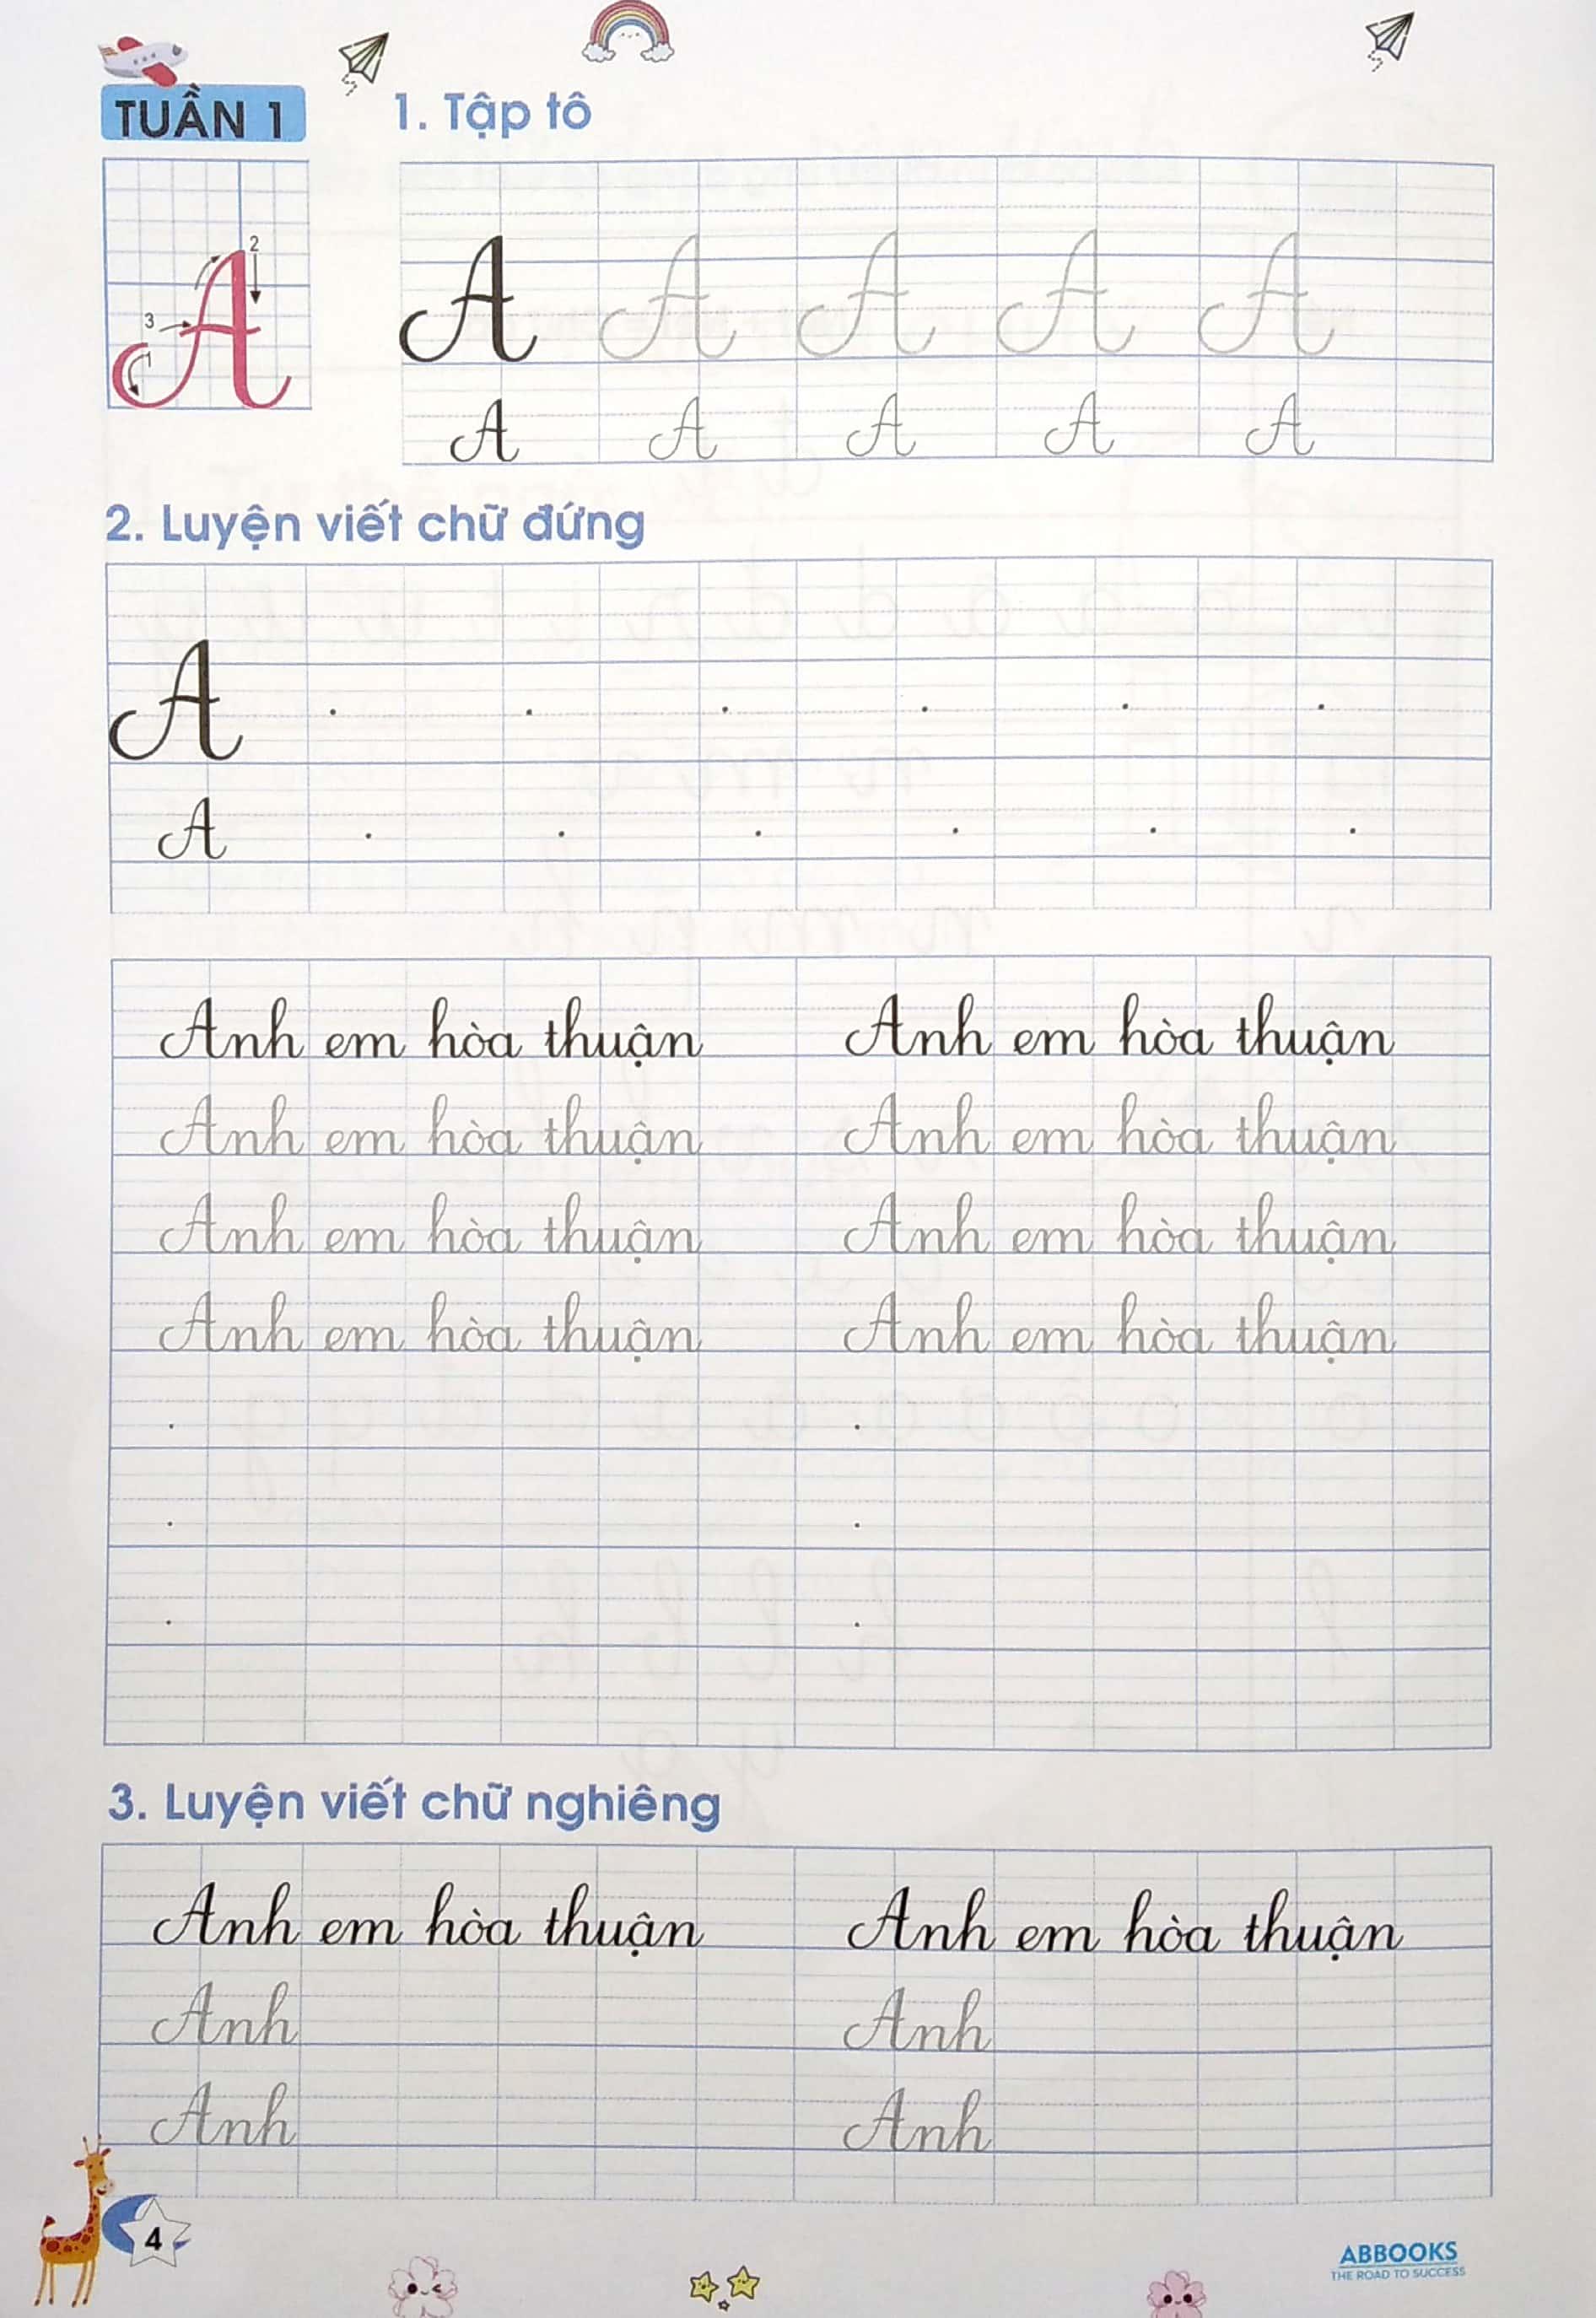 TUẦN 1
1. Tập tô
2
3
1
A A A A A
A A A A A
2. Luyện viết chữ đứng
A
A
Anh em hòa thuận Anh em hòa thuận
Anh em hòa thuận Anh em hòa thuận
Anh em hòa thuận Anh em hòa thuận
Anh em hòa thuận Anh em hòa thuận
3. Luyện viết chữ nghiêng
Anh em hòa thuận Anh em hòa thuận
Anh Anh
Anh Anh
4
ABBOOKS
THE ROAD TO SUCCESS